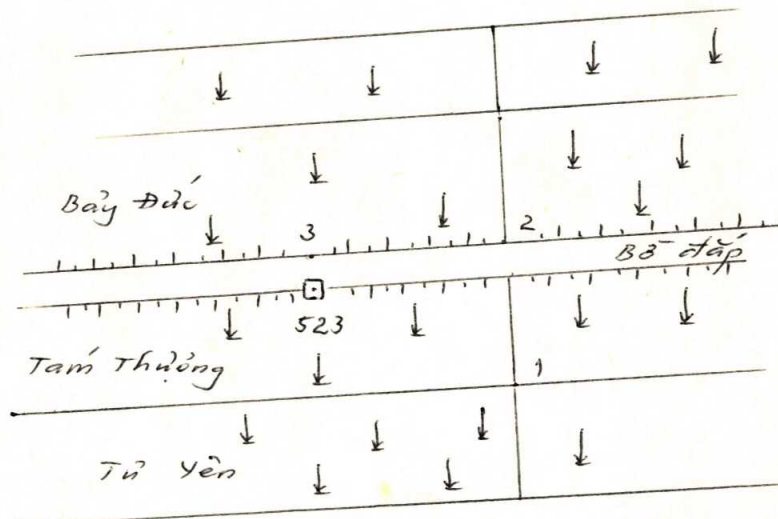 Bảy Đức
3
2
Bờ đắp
523
Tám Thưởng
1
Tư Yên